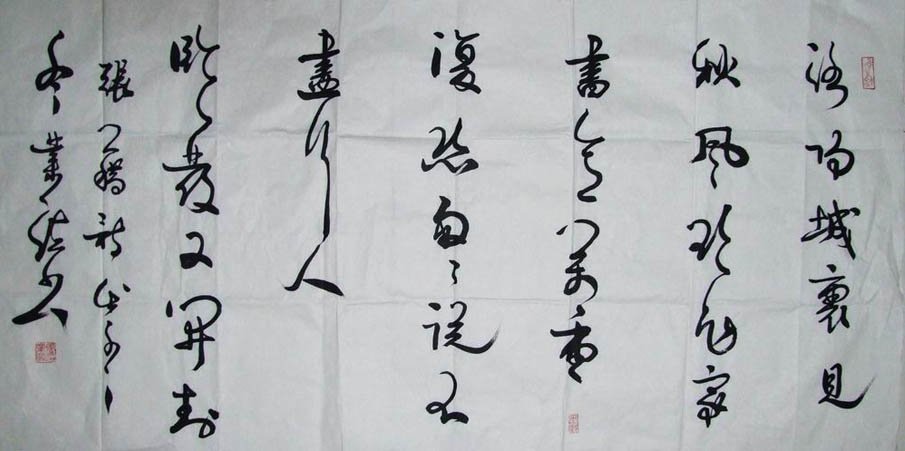 洛陽城裏見
秋風欲作家
書意萬重
復恐匆々説不
盡行人
臨發又開封
張籍詩
冬書